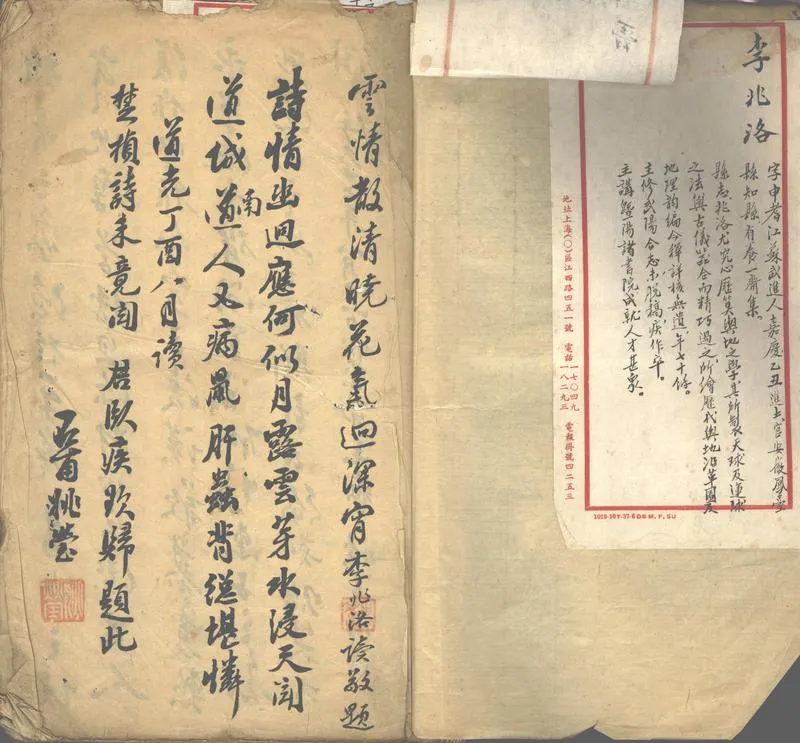 李兆洛
字申耆江蘇武進人嘉慶乙丑進士官安徽鳳臺
縣知縣有養一齋集。
縣志兆洛尤究心歷算輿地之學其所製天球及運球
之法與古儀器合而精巧過之所繪歷代輿地沿革圖及
地理韵編今釋詳核無遺年七十餘。
主修武陽合志未脫稿疾作卒。
主講暨陽諸書院成就人才甚衆。
地址上海(〇)區江西路四五一號 電話一七〇四九 一八二九三 電報掛號四二五三
雲情散清曉花氣迴深宵李兆洛讀敬題
詩情幽迥應何似月露雲芽水浸天聞
道城南道人又病鼠肝蟲臂總堪憐
道光丁酉八月讀
楚楨詩未竟聞 君臥疾欲歸題此
石甫姚瑩